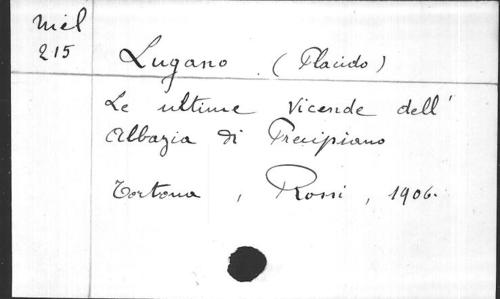 Miél
215
Lugano (Placido)
Le ultime vicende dell'
Abbazia di Precipiano
Tortona, Rossi, 1906.